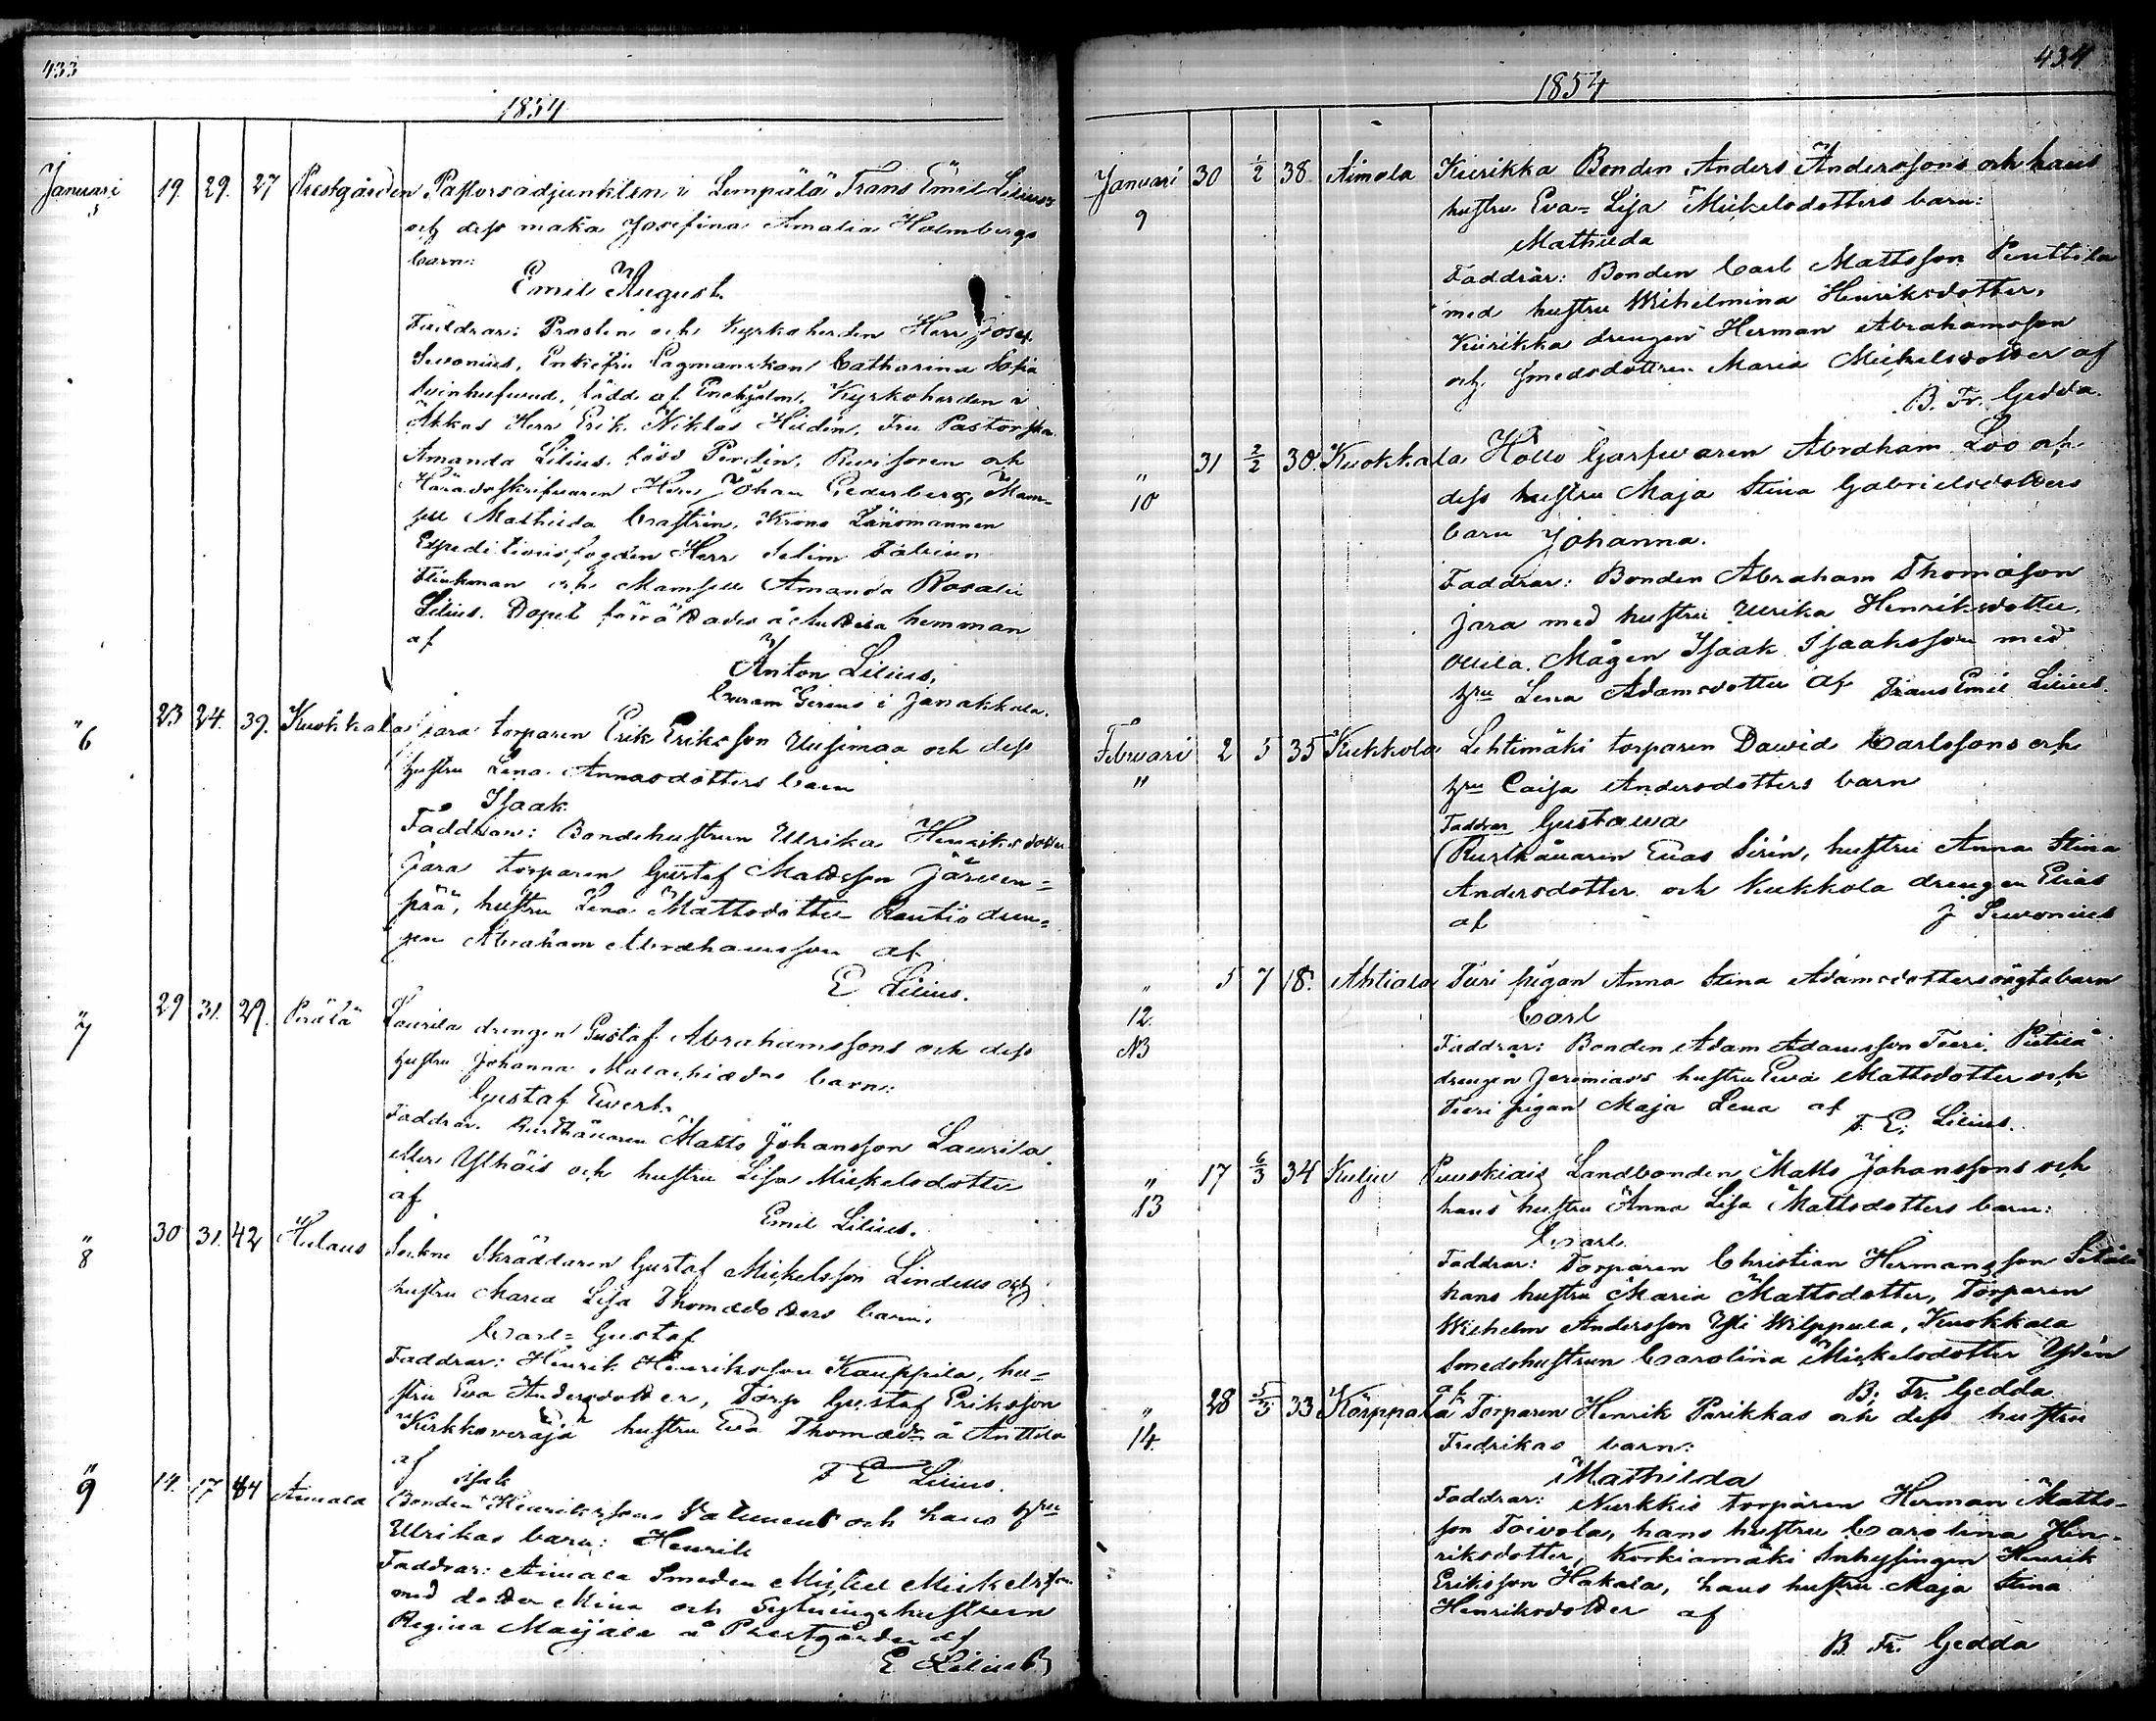 433
1854
Januari 5 19. 29. 27 Prestgården Pastorsadjunkten i Lempälä Frans Emil Lilius
och dess maka Josefina Amalia Holmbergs
barn:
Emil August.
Faddrar: Prosten och Kyrkoherden Herr Josef
Suvonius, Enkefru Lagmanskan Catharina Sofia
Svinhufvud, född af Enehjelm, Kyrkoherden i
Akkas Herr Erik Niklas Hidén, Fru Pastorskan
Amanda Lilius, född Perdin, Revisoren och
Häradsskrifvaren Herr Johan Cederberg, Mam-
sell Mathilda Castrén, Krono Länsmannen
Expeditionsfogden Herr Selim Fabian
Flinkman och Mamsell Amanda Rosalie
Lilius. Dopet förrättades å hemman
af
Anton Lilius.
i Janakkala.
" 6 23 24. 39. Kuokkala Jara torparen Erik Eriksson Uusimaa och dess
hustru Lena Annasdotters barn
Isaak
Faddrar: Bondehustrun Ulrika Henriksdotter
Jara torparen Gustaf Mattsson Järven-
pää, hustru Lena Mattsdotter Rautio dren-
gen Abraham Abrahamsson af
E Lilius.
" 7 29 31. 29. Perälä Laurila drengen Gustaf Abrahamssons och dess
hustru Johanna barn:
Gustaf Evert.
Faddrar. Rusthållaren Matts Johansson Laurila
eller Ylhäis och hustru Lisa Mickelsdotter
af
Emil Lilius.
" 8 30 31. 42 Hulaus Sockne Skräddaren Gustaf Mickelsson Lindeus och
hustru Maria Lisa Thomædotters barn:
Carl-Gustaf
Faddrar: Henrik Henriksson Kauppila, hu-
stru Eva Andersdotter, Torp Gustaf Eriksson
Kirkkoveräjä hustru Eva Thomædr å Anttila
af
F E Lilius.
" 9 14. 17 84 Aimala Bonden Isak Henrikssons och hans hru
Ulrikas barn: Henrik
Faddrar: Aimala Smeden Mickel Mickelsson
med dotter Mina och Sytningshustrun
Regina Maijala å Prestgården af
E Lilius
434
1854
Januari 9 30 1/2 38 Aimala Kiirikka Bonden Anders Anderssons och hans
hustru Eva-Lisa Mickelsdotters barn:
Mathilda
Faddrar: Bonden Carl Mattsson Penttila
med hustru Wilhelmina Henriksdotter,
Kiirikka drengen Herman Abrahamsson
och Smedsdottren Maria Mickelsdotter af
B. Fr. Gedda.
" 10 31 2/2 30. Kuokkala Hollo Garfvaren Abraham Loo och
dess hustru Maja Stina Gabrielsdotters
barn Johanna.
Faddrar: Bonden Abraham Thomason
Jara med hustru Ulrika Henriksdotter,
Ollila Mågen Isaak Isaaksson med
hru Lena Adamsdotter af Frans Emil Lilius.
Februari " 2 5 35 Kukkola Lehtimäki torparen David Carlssons och
hru Caisa Andersdotters barn
Faddrar Gustava
Rusthållaren Elias Sirén, hustru Anna Stina
Andersdotter och Kukkola drengen Elias
af J Suvonius
" 12. N3 5 7 18. Ahtiala Tiiri pigan Anna Stina Adamsdotters oägta barn
Carl
Faddrar: Bonden Adam Adamsson Teeri, Pietilä
drengen Jeremiass hustru Eva Mattsdotter och
Teeri pigan Maja Lena af
F. E. Lilius.
" 13 17 6/3 34 Kulju Puuskiais Landbonden Matts Johanssons och
hans hustru Anna Lisa Mattsdotters barn:
Carl
Faddrar: Torparen Christian Hermansson Setälä
hans hustru Maria Mattsdotter, Torparen
Wilhelm Andersson Yli Wilppula, Kuokkala
Smedshustrun Carolina Mickelsdotter Ylén
af B. Fr. Gedda
" 14. 28 5/3 33 Körppälä Torparen Henrik Parikkas och dess hustru
Fredrikas barn:
Mathilda
Faddrar: Nurkkis torparen Herman Matts-
son Toivola, hans hustru Carolina Hen-
riksdotter, Korkiamäki Inhysingen Henrik
Eriksson Hakala, hans hustru Maja Stina
Henriksdotter af
B. Fr. Gedda